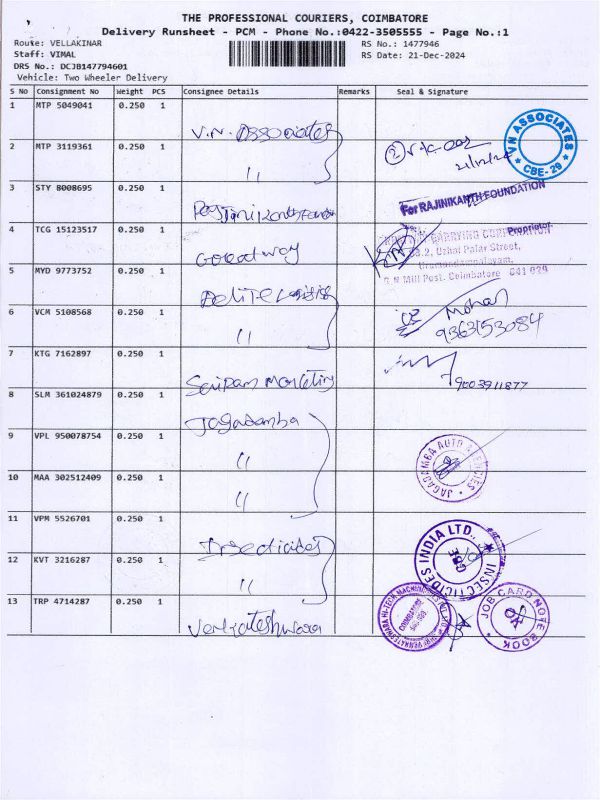 THE PROFESSIONAL COURIERS, COIMBATORE
Delivery Runsheet - PCM - Phone No.:0422-3505555 - Page No.:1
Route: VELLAKINAR
RS No.: 1477946
Staff: VIMAL
RS Date: 21-Dec-2024
DRS No.: DCJB147794601
Vehicle: Two Wheeler Delivery
S No Consignment No Weight PCS Consignee Details Remarks Seal & Signature
1 MTP 5049041 0.250 1
V.N. Associates
VN ASSOCIATES
CBE-29
2 MTP 3119361 0.250 1
"
21/12/24
3 STY 8008695 0.250 1
For RAJINIKANTH FOUNDATION
4 TCG 15123517 0.250 1
Proprietor
CARRYING CORPORATION
Uzhai Palar Street,
Goodway
5 MYD 9773752 0.250 1
Mill Post. Coimbatore 641 029
6 VCM 5108568 0.250 1
"
Mohan
9363153084
7 KTG 7162897 0.250 1
Sairam Marketing
9003911877
8 SLM 361024879 0.250 1
Jagadamba
9 VPL 950078754 0.250 1
"
JAGADAMBA AUTO AGENCIES
10 MAA 302512409 0.250 1
"
11 VPM 5526701 0.250 1
Insecticides
INSECTICIDES INDIA LTD.,
CBE
12 KVT 3216287 0.250 1
"
13 TRP 4714287 0.250 1
Venkateshwara
COIMBATORE
JOB CARD NOTE BOOK